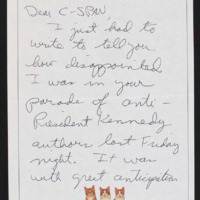 Dear C-SPAN,
I just had to
write to tell you
how disappointed
I was in your
parade of anti-
President Kennedy
authors last Friday
night. It was
with great anticipation